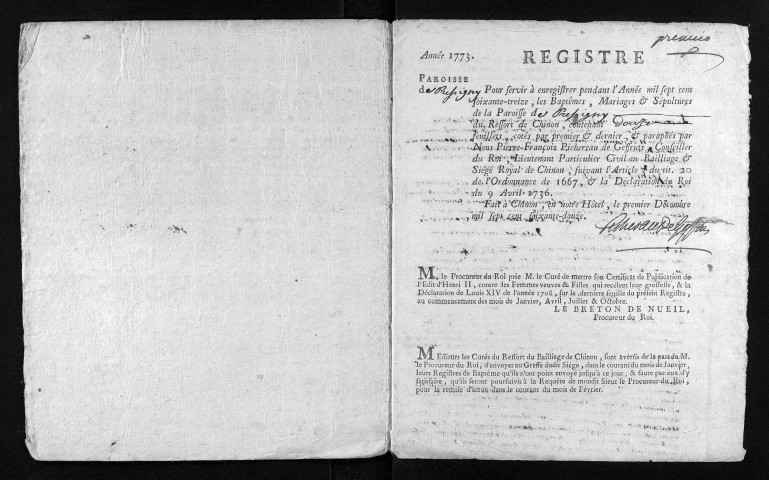 premier
Année 1773. REGISTRE
PAROISSE
de Pressigny Pour servir à enregistrer pendant l'Année mil sept cent
soixante-treize, les Baptêmes, Mariages & Sépultures
de la Paroisse de Pressigny
du Ressort de Chinon, contenant
feuillets, cotés par premier & dernier, & paraphés par
Nous Pierre-François Pichereau de Geffrus, Conseiller
du Roi, Lieutenant Particulier Civil au Bailliage &
Siége Royal de Chinon, suivant l'Article du tit. 20
de l'Ordonnance de 1667, & la Déclaration du Roi
du 9 Avril 1736.
Fait à Chinon, en notre Hôtel, le premier Décembre
mil sept cent soixante-douze.
M. le Procureur du Roi prie M. le Curé de mettre son Certificat de Publication de
l'Edit d'Henri II, contre les Femmes veuves & Filles qui recélent leur grossesse, & la
Déclaration de Louis XIV de l'année 1708, sur la derniere feuille du présent Registre,
au commencement des mois de Janvier, Avril, Juillet & Octobre.
LE BRETON DE NUEIL,
Procureur du Roi.
MEssieurs les Curés du Ressort du Bailliage de Chinon, sont avertis de la part de M.
le Procureur du Roi, d'envoyer au Greffe dudit Siége, dans le courant du mois de Janvier,
leurs Registres de Baptême qu'ils n'ont point envoyé jusqu'à ce jour; & faute par eux d'y
satisfaire, qu'ils seront poursuivis à la Requête de mondit Sieur le Procureur du Roi,
pour la remise d'iceux dans le courant du mois de Février.